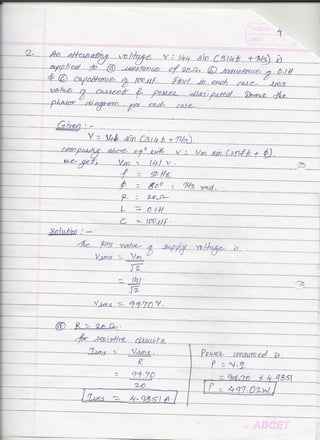 4
2. An alternating voltage V = 144 sin (314t + π/3) is
applied to ⓐ resistance of 20Ω ⓑ inductance of 0.1H
& ⓒ capacitance of 100μf. Find in each case rms
value of current & power dissipated. Draw the
phasor diagram for each case.
Given :-
V = 144 sin (314t + π/3).
comparing above eqⁿ with V = Vm sin (2πft + ϕ).
we get, Vm = 141 V.
f = 50 Hz.
ϕ = 60° = π/3 rad.
R = 20Ω
L = 0.1H
C = 100μf.
Solution :-
The rms value of supply voltage is.
Vrms = Vm
√2
= 141
√2
Vrms = 99.70 V.
ⓐ R = 20Ω.
for resistive circuits.
Irms = Vrms.
R
= 99.70
20
Irms = 4.9851 A
Power consumed is.
P = V.I
= 99.70 × 4.9851
P = 497.02W
ADCET